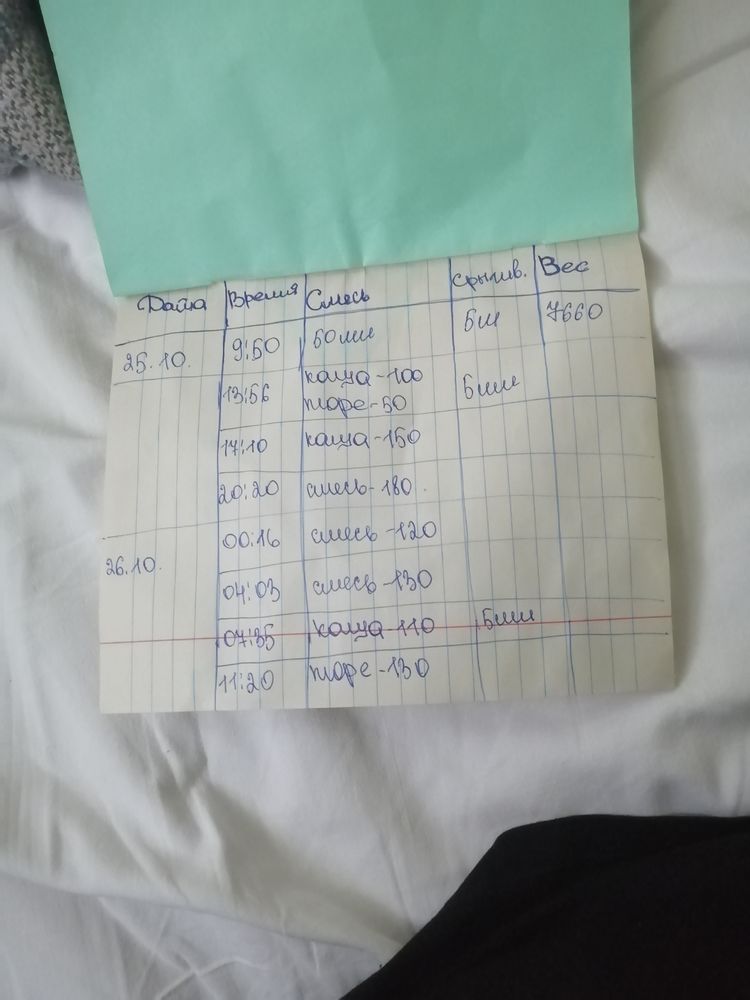 Дата Время Смесь срыгив. Вес
25.10. 9:50 50мл 5мл 7660
13:56 каша-100 5мл
пюре-50
17:10 каша-150
20:20 смесь-180.
00:16 смесь-120
26.10. 04:03 смесь-130
07:35 каша-110 5мл
11:20 пюре-130